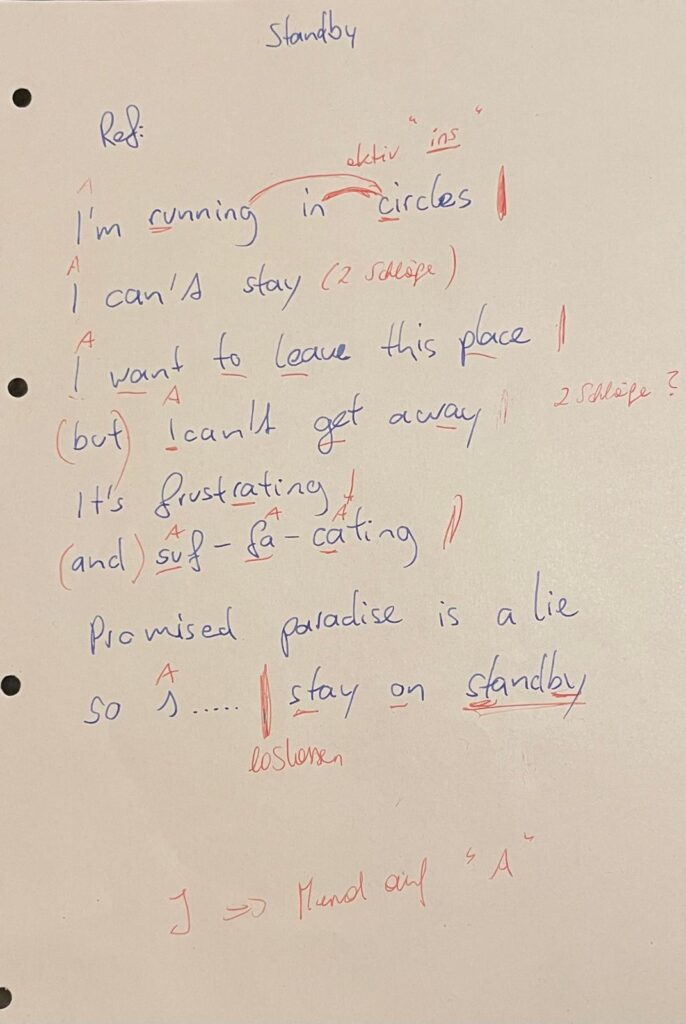 Standby
Ref:
aktiv "ins"
A
I'm running in circles |
A
I can't stay (2 Schläge)
A
I want to leave this place |
A
(but) I can't get away | 2 Schläge ?
It's frustrating |
A A A
(and) suf - fa - cating |
Promised paradise is a lie
A
so I..... | stay on standby
loslassen
I => Mund auf "A"